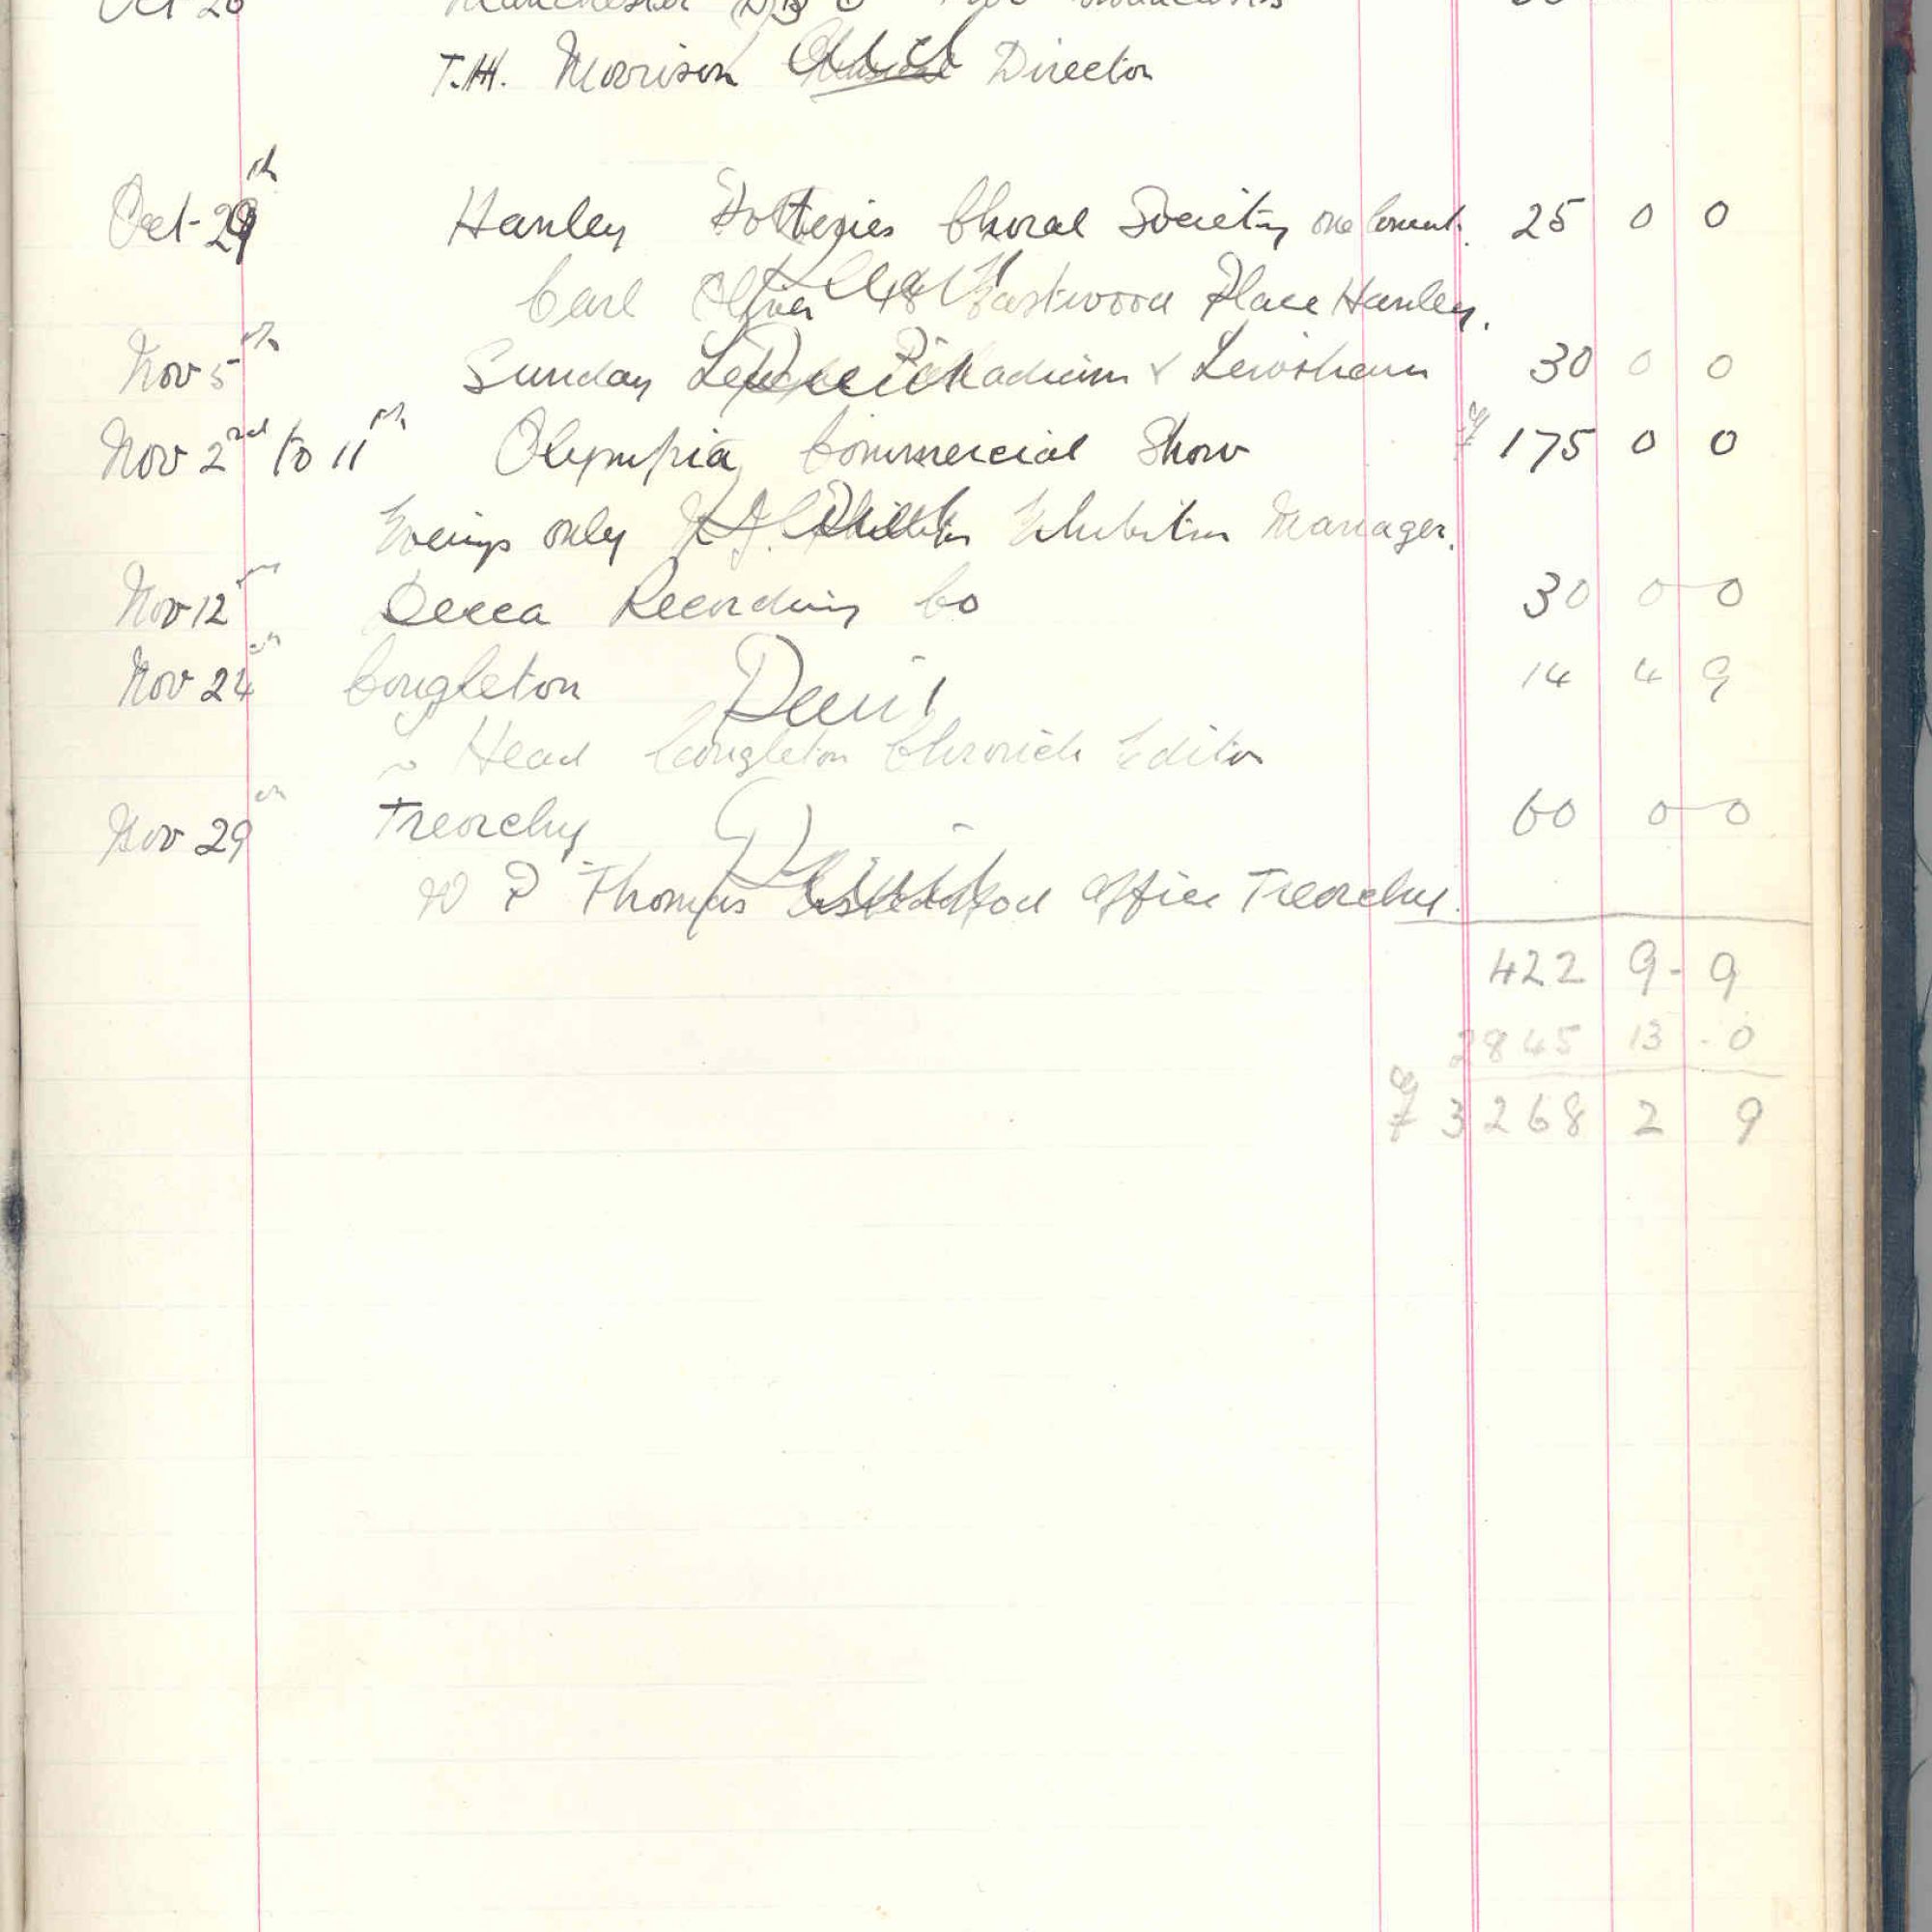 Oct 20 Manchester B B C
T.H. Morrison Musical Director
Oct-29th Hanley Potteries Choral Society one Concert. 25 0 0
Carl Oliver 48 Eastwood Place Hanley.
Nov 5th Sunday Palladium & Lewisham 30 0 0
Nov 2nd to 11th Olympia Commercial Show £ 175 0 0
only Exhibition Manager.
Nov 12th Decca Recording Co 30 0 0
Nov 24th Congleton Paid 14 4 9
Head Congleton Chronicle Editor
Nov 29th Treorchy Paid 60 0 0
W P Thomas Office Treorchy.
422 9 - 9
2845 13 - 0
£ 3268 2 9